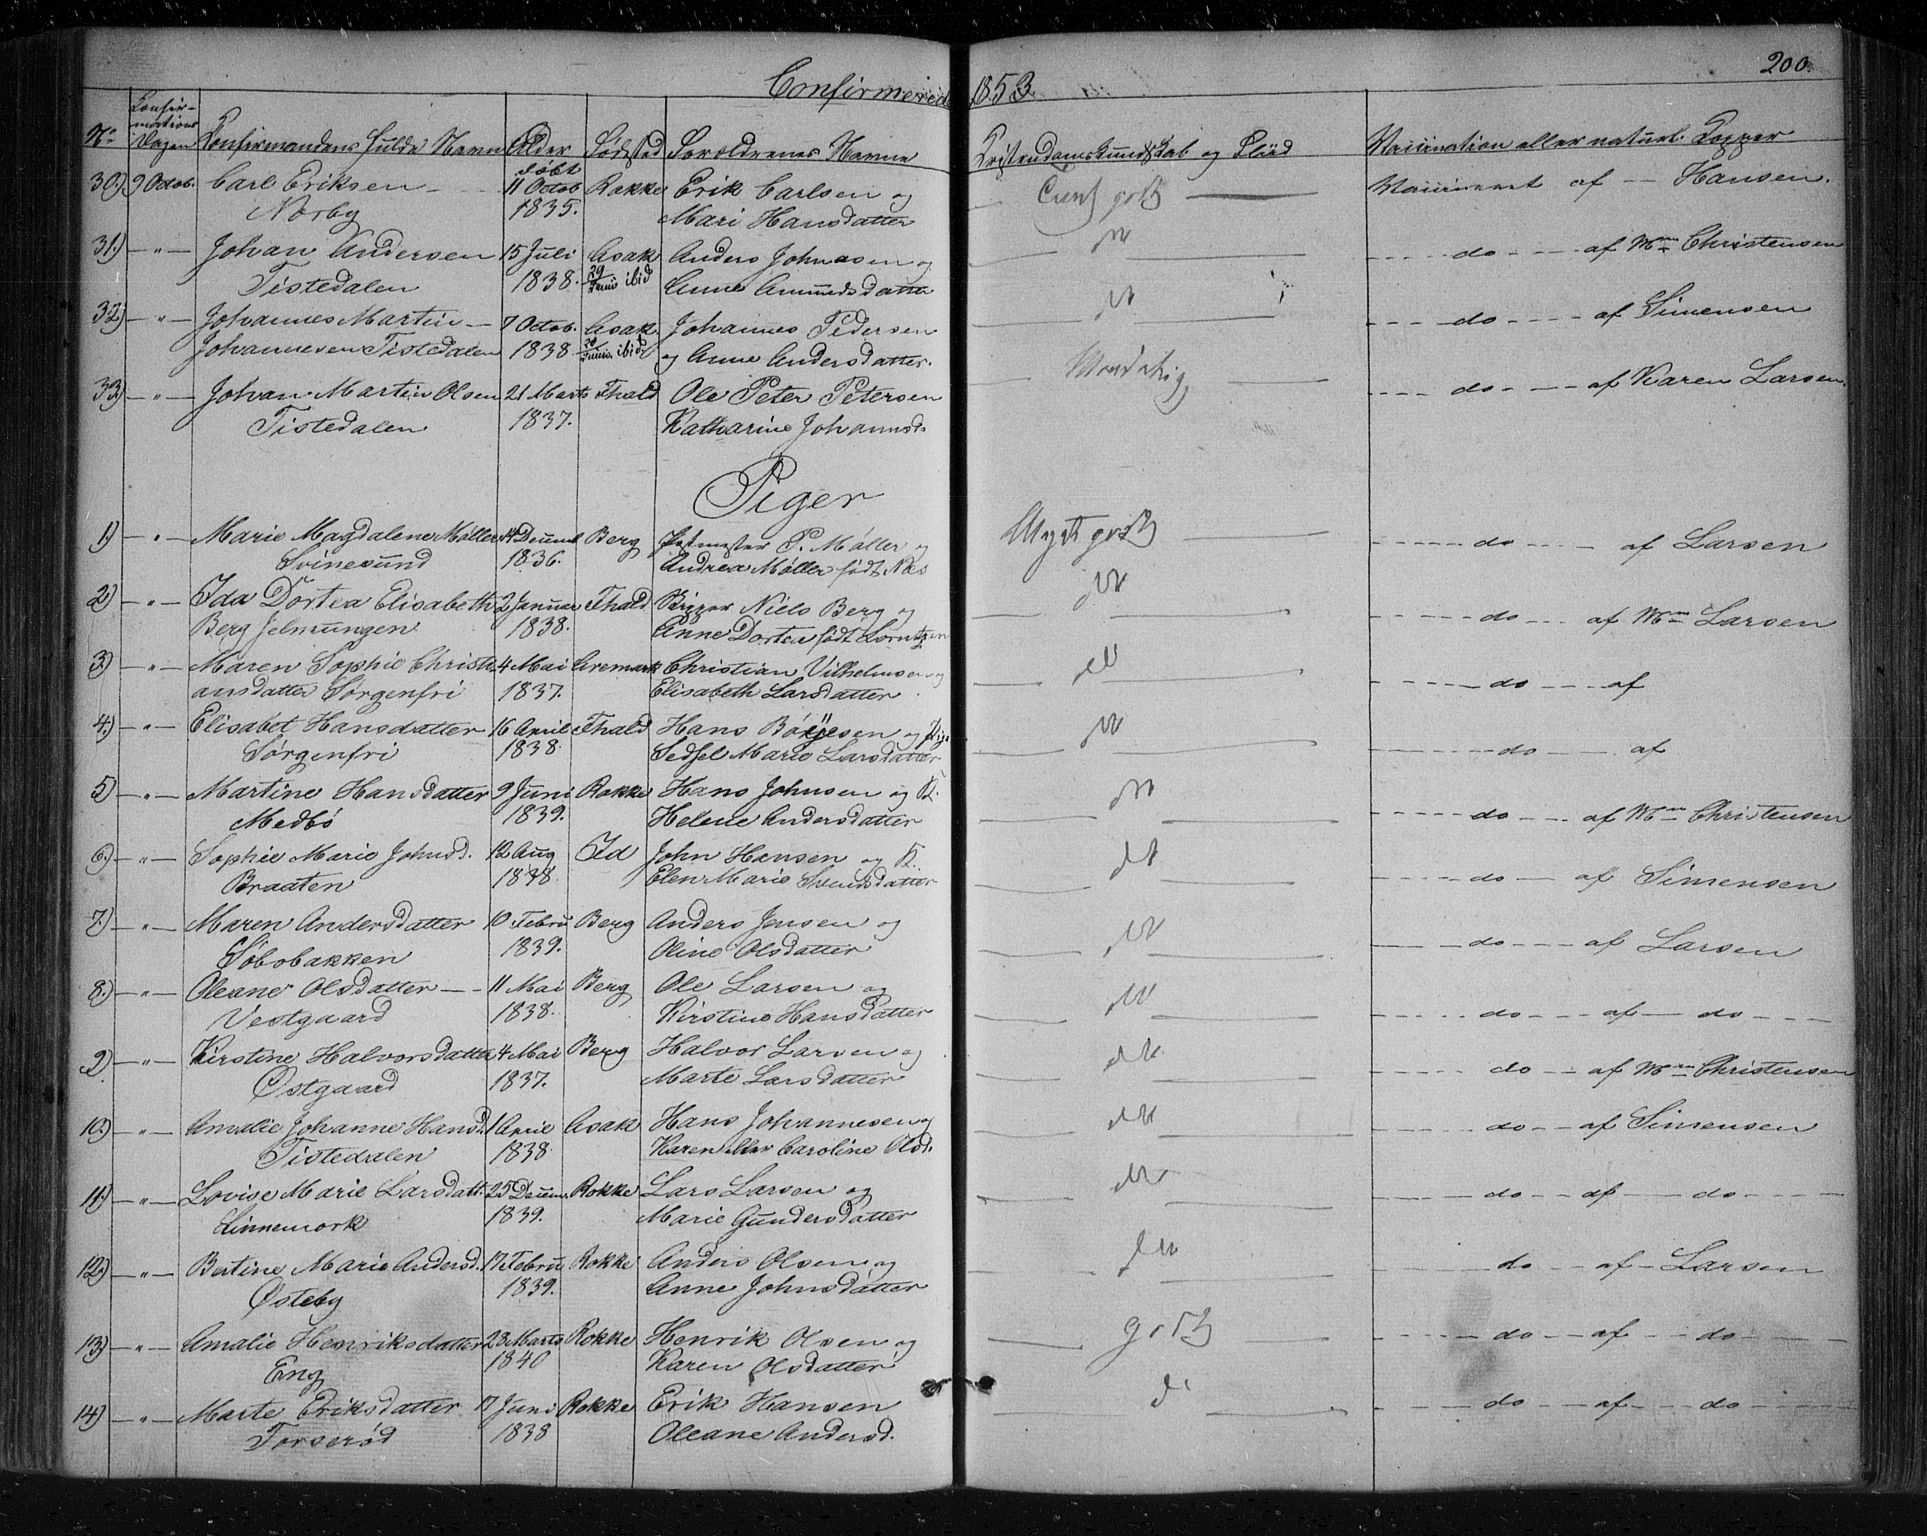 200.
Confirmerede 1853.
No Confirmations Dagen Confirmandens fulde Navn Alder Fødested Forældrenes Navne Kristendomskundskab og Fliid Vaccination eller naturl. Kopper
30) 9 Octob. Carl Eriksen døbt 11 Octob Rokke Erik Carlsen og godt Vaccineret af — Hansen.
Norby 1835. Mari Hansdatter
31) — " — Johan Andersen 15 Juli Asak Anders Johnsen og do af Mm Christensen
Tistedalen 1838. ibid Anne Amundsdatter
32) — " — Johannes Martin 7 Octob. Asak Johannes Pedersen do af Simensen
Johannesen Tistedalen 1838. ibid og Anne Andersdatter.
33) — " — Johan Martin Olsen 21 Marts Fhald Ole Peter Petersen do af Karen Larsen.
Tistedalen 1837. Katharine Johannsd.
Piger
1) — " — Marie Magdalene Møller 14 Decemb Berg P. Møller og Meget godt do af Larsen
Svinesund 1836. Andrea Møller født Næs
2) — " — Ida Dortea Elisabeth 2 Januar Fhald Niels Berg og do af Mm Larsen
Berg 1838. Anne Dortea født Lorntzen
3) — " — Maren Sophie Christi 4 Mai Aremark Christian Vilhelmsen og do af
ansdatter Sørgenfri 1837. Elisabeth Larsdatter
4) — " — Elisabet Hansdatter 16 April Fhald Hans Børjesen og do af
Sørgenfri 1838. Sedsel Marie Larsdatter
5) — " — Martine Hansdatter 9 Juni Rokke Hans Johnsen og K. do af Mm Christensen
Medbø 1839. Helene Andersdatter
6) — " — Sophie Marie Johnsd. 12 Aug Id John Hansen og K. do af Simensen
Braaten 1838. Elen Marie Svendsdatter
7) — " — Maren Andersdatter 10 Febru Berg Anders Jensen og do af Larsen
1839. Oline Olsdatter
8.) — " — Oleane Olsdatter 11 Mai Berg Ole Larsen og do af do
Vestgaard 1838. Kirstine Hansdatter
9) — " — Kirstine Halvorsdatter 4 Mai Berg Halvor Larsen og do af Mm Christensen
Østgaard 1837. Marte Larsdatter
10) — " — Amalie Johanne Hansd. 1 April Asak Hans Johannesen og do af Simensen
Tistedalen 1838 Karen eller Caroline Olsd.
11) — " — Lovise Marie Larsdatt. 25 Decem. Rokke Lars Larsen og do af do
Linnemork 1839. Marie Gundersdatter
12) — " — Bertine Marie Andersd. 17 Febru Rokke Anders Olsen og do af Larsen
Østeby 1839. Anne Johnsdatter
13) — " — Amalie Henriksdatter 23 Marts Rokke Henrik Olsen og godt do af do
Eng 1840 Karen Olsdatter
14) — " — Marte Eriksdatter 17 Juni Rokke Erik Hansen do af do
Torserød 1838 Oleane Andersd.